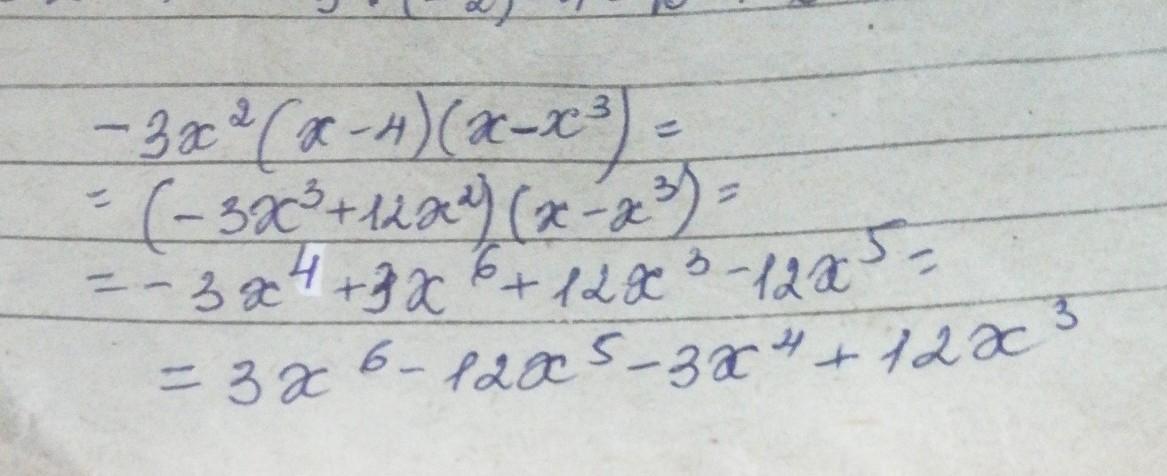 -3x²(x-4)(x-x³)=
=(-3x³+12x²)(x-x³)=
=-3x⁴+3x⁶+12x³-12x⁵=
=3x⁶-12x⁵-3x⁴+12x³